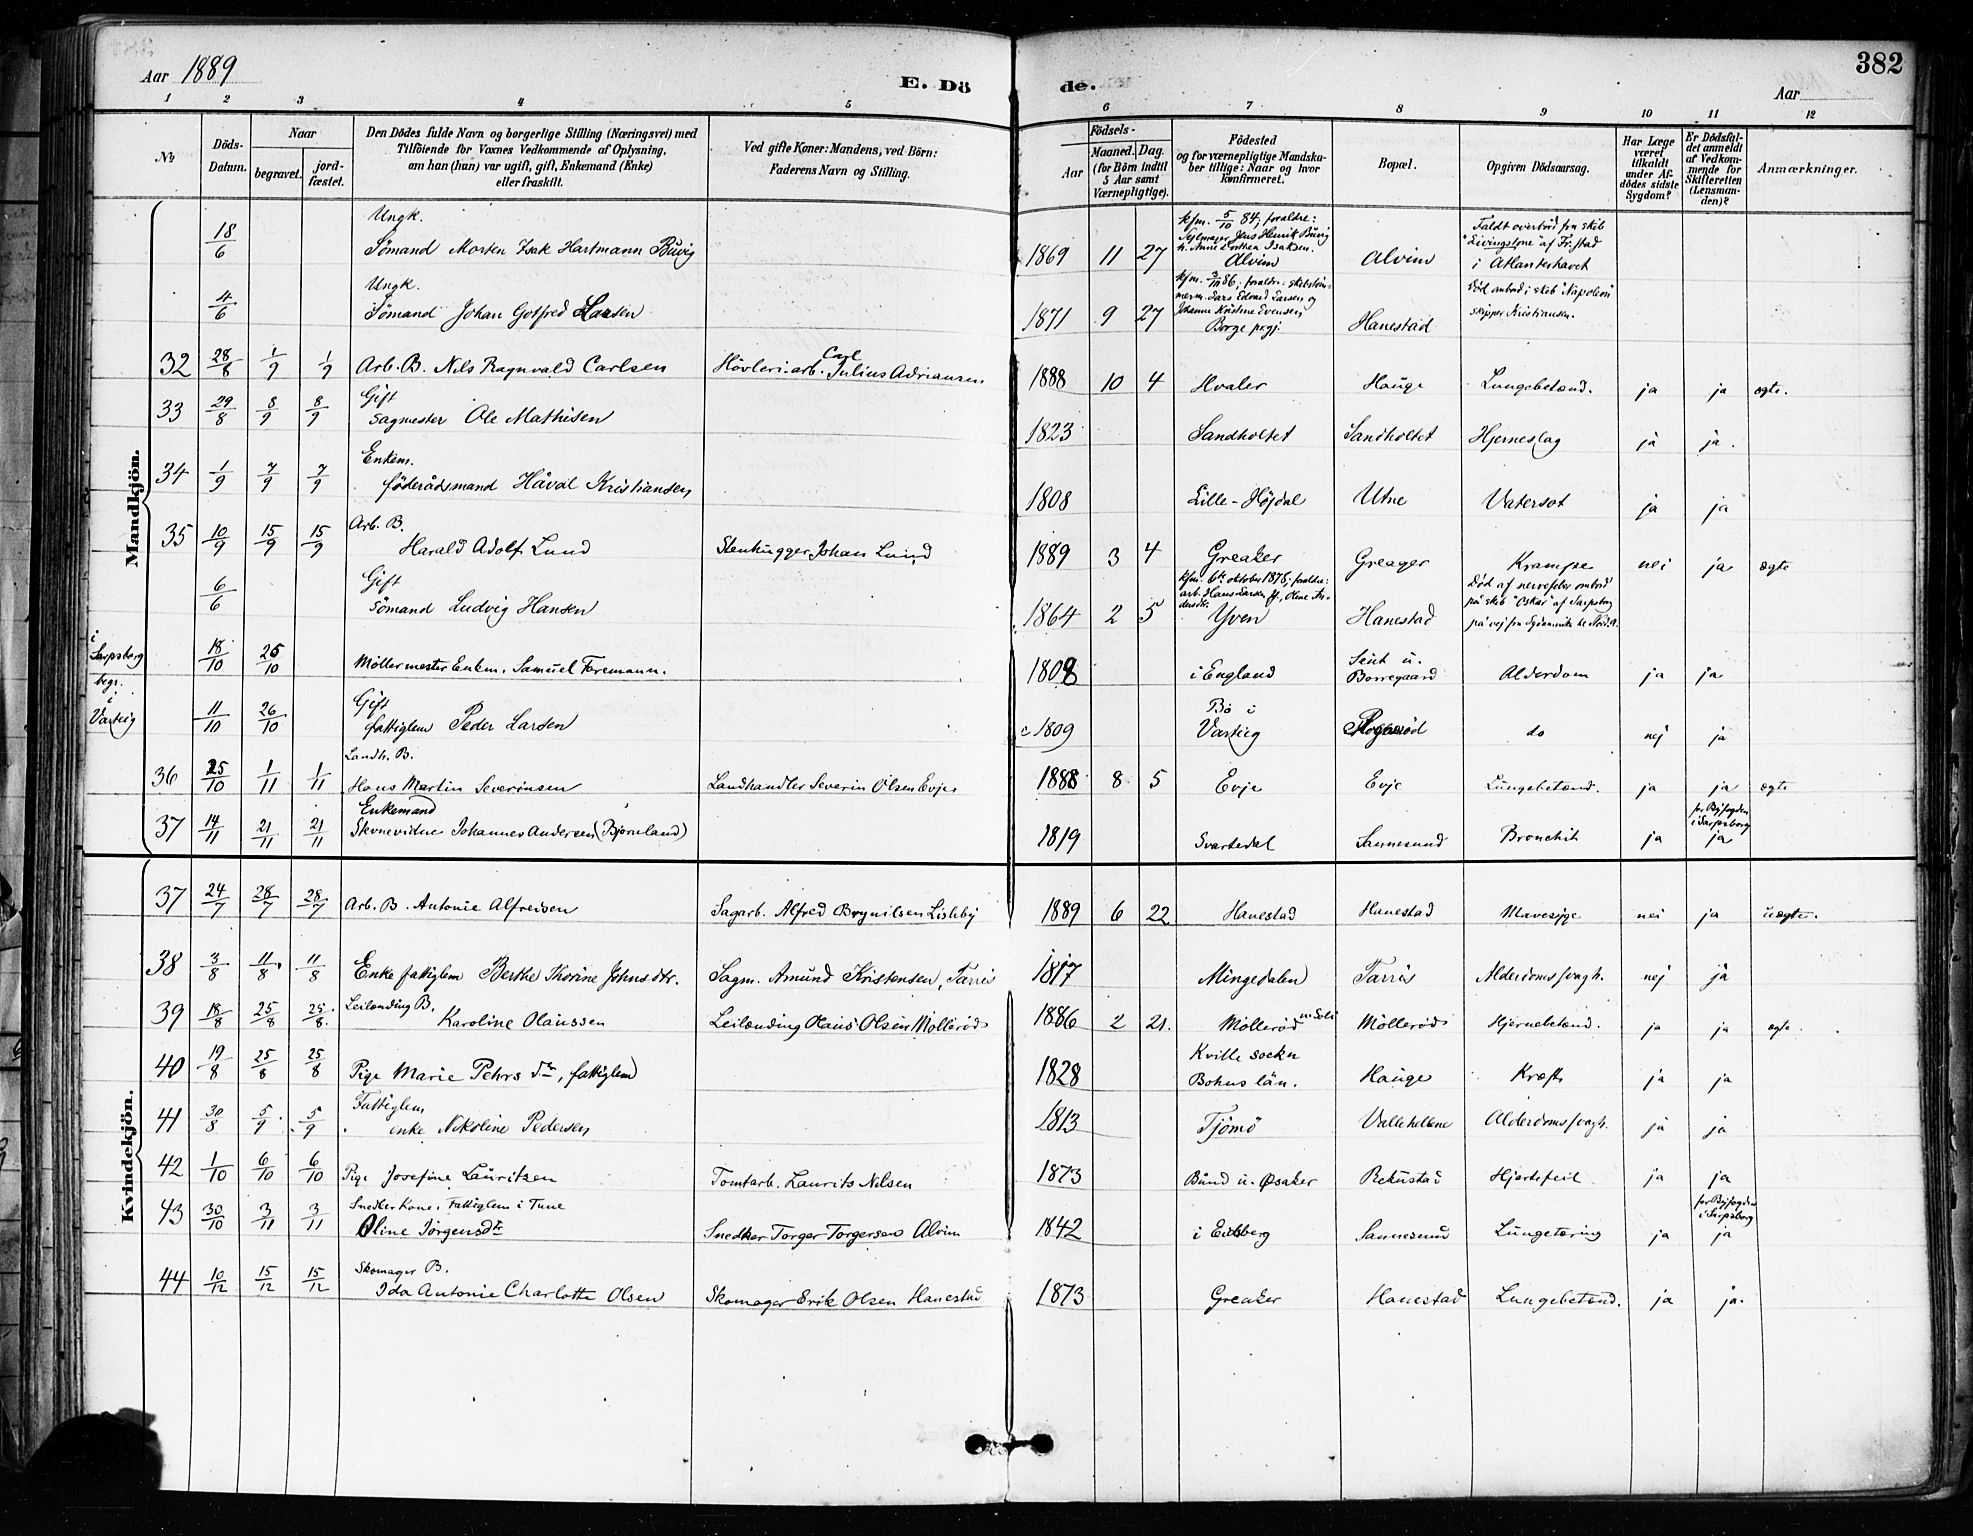 Aar 1889
E. Dö
de.
382
Aar
1 2 3 4 5 6 7 8 9 10 11 12
No
Döds-
Datum.
Naar
begravet.
jord-
fæstet.
Den Dödes fulde Navn og borgerlige Stilling (Næringsvei) med
Tilföiende for Voxnes Vedkommende af Oplysning,
om han (hun) var ugift, gift, Enkemand (Enke)
eller fraskilt.
Ved gifte Koner: Mandens, ved Börn:
Faderens Navn og Stilling.
Födsels-
Aar
Maaned. Dag.
(for Börn indtil
5 Aar samt
Værnepligtige).
Födested
og for værnepligtige Mandska-
ber tillige: Naar og hvor
konfirmeret.
Bopæl.
Opgiven Dödsaarsag.
Har Læge
været
tilkaldt
under Af-
dödes sidste
Sygdom?
Er Dödsfal-
det anmeldt
af Vedkom-
mende for
Skifteretten
(Lensman-
den)?
Anmærkninger.
Mandkjön.
Ungk.
18/6 Sömand Morten Isak Hartmann Buvig
1869 11 27
kfm. 5/10 84; foraldre:
Sejlmager Jens Henrik Buvig
h. Anne Dorthea Isaksen.
Alvim
Alvim
Faldt overbord fra skib
"Livingstone" af Fr.stad
i Atlanterhavet
Ungk.
4/6 Sömand Johan Gotfred Larsen
1871 9 27
kfm. 3/10 86; foraldre: skibstöm-
merm. Lars Edvard Larsen og
Johanne Kristine Evensen
Borge prgj.
Hanestad
död ombord i skib "Napoleon"
skipper Kristiansen.
32 28/8 1/9 1/9 Arb. B. Nils Ragnvald Carlsen
Hövleri-arb. Carl Julius Adriansen
1888 10 4 Hvaler Hauge Lungebetænd. ja ja ægte.
Gift
33 29/8 8/9 8/9 Sagmester Ole Mathisen
1823 Sandholtet Sandholtet Hjerneslag ja ja.
Enkem.
34 1/9 7/9 7/9 föderådsmand Håval Kristiansen
1808 Lille-Höjdal Utne Vatersot ja ja
Arb. B.
35 10/9 15/9 15/9 Harald Adolf Lund
Stenhugger Johan Lund
1889 3 4 Greaker Greager Krampe nei ja ægte
Gift
6/6 Sömand Ludvig Hansen
1864 2 5
kfm. 6te oktober 1878; foraldre:
arb. Hans Larsen &, Olene An-
dersdtr.
Yven
Hanestad
Död af nervefeber ombord
på skib "Oskar" af Sarpsborg
på vej fra Sydamerika til Nord.a.
i
Sarpsborg
18/10 25/10 Möllermester Enkm. Samuel Foremann.
1808 i England
Seut u.
Borregaard Alderdom ja ja
begr.
i
Varteig
Gift
11/10 26/10 fattiglem Peder Larsen
c 1809
Bö i
Varteig
do nej ja
Landh. B.
36 25/10 1/11 1/11 Hans Martin Severinsen
Landhandler Severin Olsen Evje
1888 8 5 Evje Evje Lungebetænd. ja ja ægte
Enkemand
37 14/11 21/11 21/11 Johannes Andersen (Bjørneland)
1819 Svartedal Sannesund Bronchit ja
for Byfogden
i Sarpsborg
ja
Kvindekjön.
37 24/7 28/7 28/7 Arb. B. Antonie Alfredsen
Sagarb. Alfred Brynilsen Lisleby
1889 6 22 Hanestad Hanestad Mavesyge nei ja uægte.
38 3/8 11/8 11/8 Enke fattiglem Berthe Thorine Johnsdtr.
Sagm. Amund Kristensen, Tarris
1817 Mingedalen Tarris Alderdomssvagh. nej ja
Leilænding B.
39 18/8 25/8 25/8. Karoline Olaussen
Leilænding Olaus Olsen Mölleröd
1886 2 21. Mölleröd u. Soli Mölleröd Hjernebetænd. ja ja ægte.
40 19/8 25/8 25/8 Pige Marie Pehrs dtr, fattiglem
1828
Kville socken
Bohus län.
Hauge Kræft ja ja
Fattiglem
41 30/8 5/9 5/9 enke Nikoline Pedersen
1813 Tjömö Vallehellene Alderdomssvagh. ja ja
42 1/10 6/10 6/10 Pige Josefine Lauritsen
Tomtarb. Laurits Nilsen
1873 Bund u. Øsaker Rekustad Hjertefeil ja ja
Snedker Kone, Fattiglem i Tune
43 30/10 3/11 3/11 Oline Jörgensdtr
Snedker Torger Torgersen Alvim
1842 i Eidsberg Sannesund Lungetæring ja
for Byfogden
i Sarpsborg
ja
Skomager B.
44 10/12 15/12 15/12 Ida Antonie Charlotte Olsen
Skomager Erik Olsen Hanestad
1873 Greaker Hanestad Lungebetænd. ja ja.